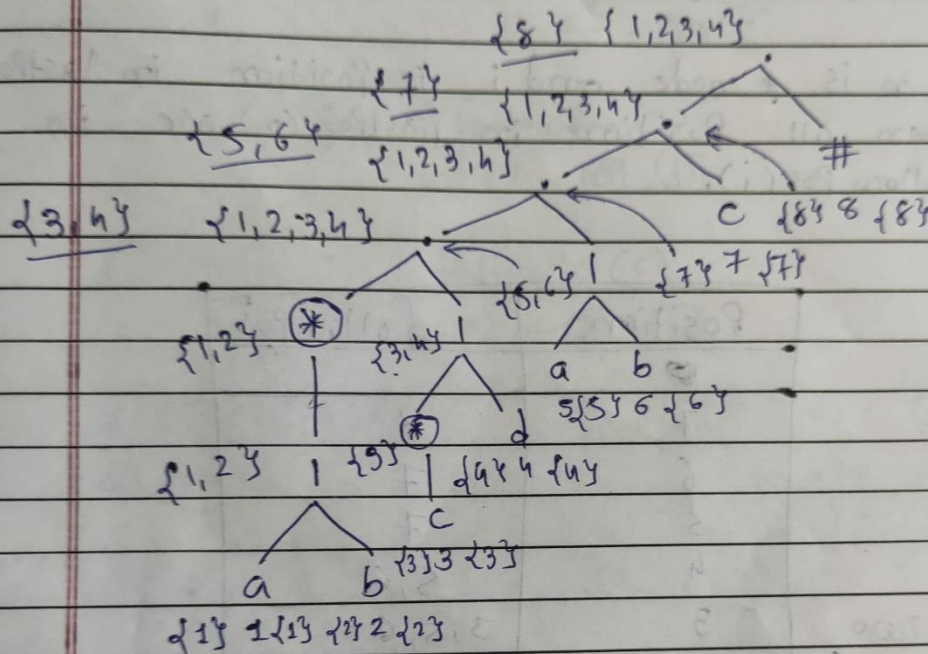 {8} {1,2,3,4}
.
{7} {1,2,3,4} .
#
{5,6} {1,2,3,4} .
c {8} 8 {8}
{3,4} {1,2,3,4} .
{5,6} | {7} 7 {7}
{1,2} * {3,4} |
a b
5{5} 6 {6}
* d
{1,2} | {3} | {4} 4 {4}
c
a b {3} 3 {3}
{1} 1 {1} {2} 2 {2}